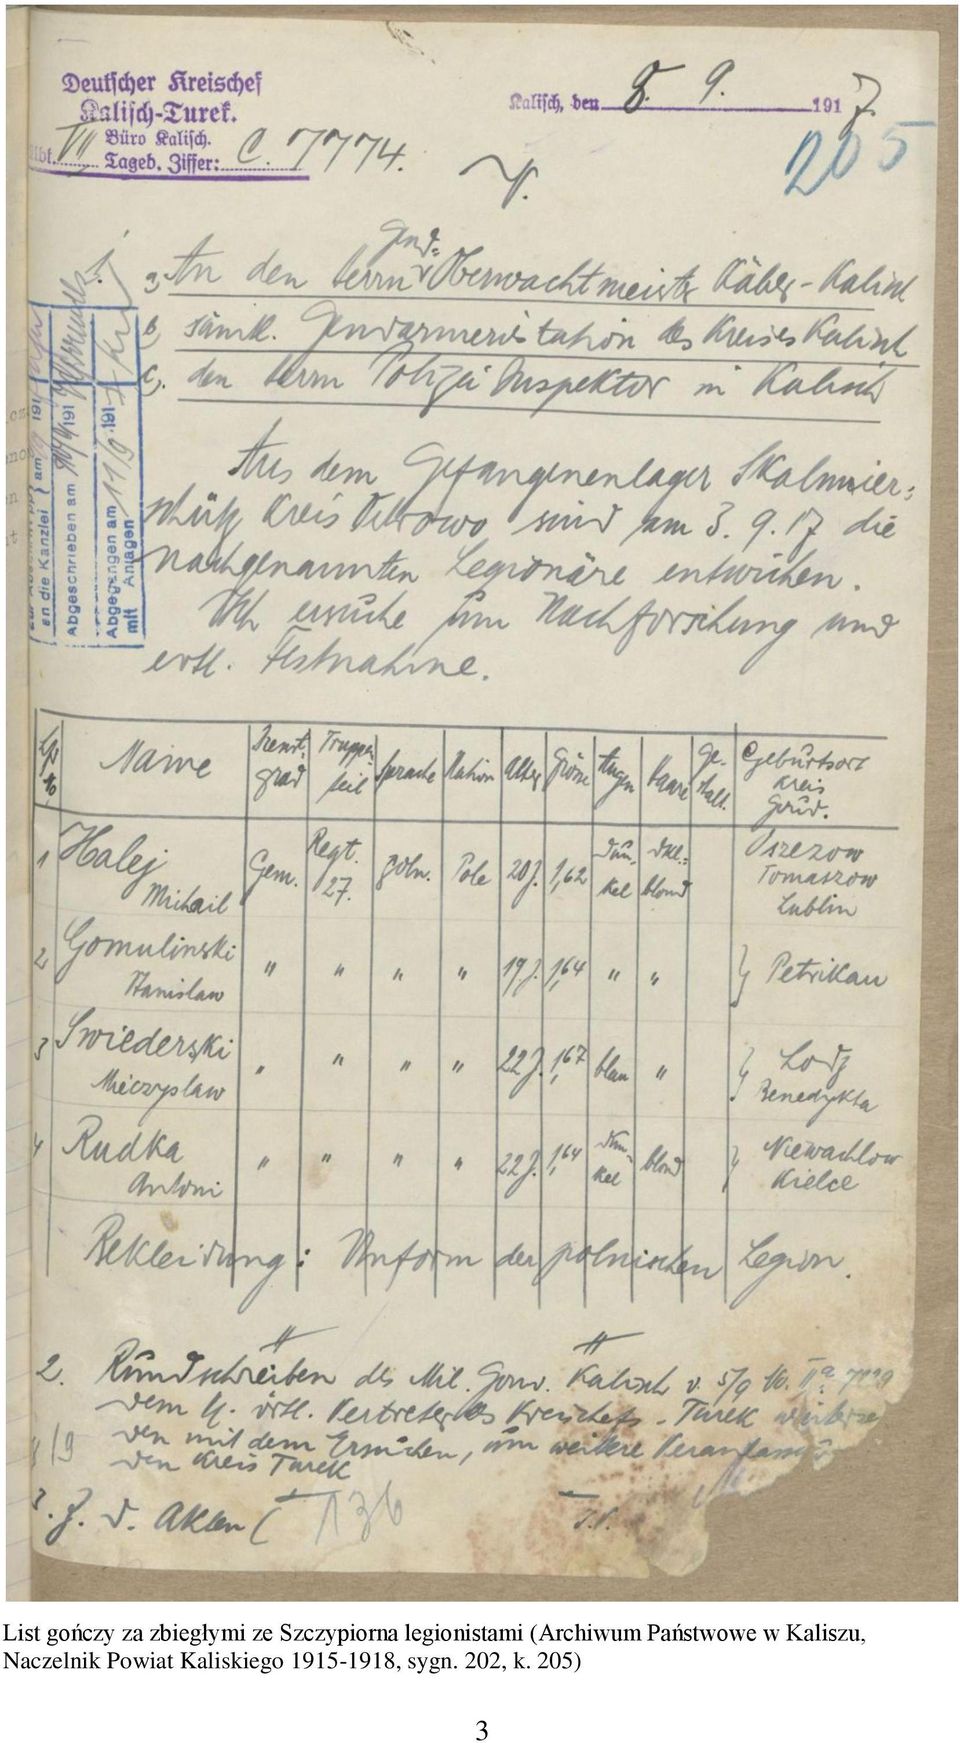 Deutscher Kreischef
Kalisch-Turek.
Abt. VII Büro Kalisch.
Tageb. Ziffer: C. 7774.
Kalisch, den 8. 9. 1917.
205
V.
a, An den Herrn Gend.= Oberwachtmeister Käber - Kalisch
b, sämtl. Gendarmeriestation des Kreises Kalisch
c, den Herrn Polizei Inspektor in Kalisch
an die Kanzlei am 191
Abgeschrieben am 10/9 191
Abgegangen am 11/9 191
mit Anlagen
Aus dem Gefangenenlager Skalmier=
schütz Kreis Ostrowo sind am 3. 9. 17 die
nachgenannten Legionäre entwichen.
Ich ersuche um Nachforschung und
evtl. Festnahme.
Name Dienst grad Truppen teil Sprache Nation Alter Grösse Augen Haare Ge- stalt. Geburtsort Kreis Gouv.
1 Halej Michail Gem. Regt. 27. poln. Pole 20 J. 1,62 dun- kel dkl.= blond Oszezow Tomaszow Lublin
2 Gomulinski Stanislaw " " " " 19 J. 1,64 " " } Petrikau
3 Swiederski Mieczyslaw " " " " 22 J. 1,67 blau " } Lodz Benedykta
4 Rudka Antoni " " " " 22 J. 1,64 dun- kel blond } Niewachlow Kielce
Bekleidung: Uniform der polnischen Legion.
2. Rundschreiben des Mil. Gouv. Kalisch v. 5/9
dem H. örtl. Vertreter des Kreischefs - Turek
mit dem Ersuchen, um weitere
den Kreis Turek
3. z. d. Akten
136
List gończy za zbiegłymi ze Szczypiorna legionistami (Archiwum Państwowe w Kaliszu,
Naczelnik Powiat Kaliskiego 1915-1918, sygn. 202, k. 205)
3